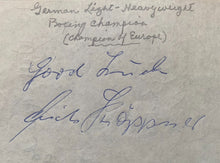 German Light-Heavyweight
Boxing Champion
(Champion of Europe)
Good Luck
Erich Schöppner